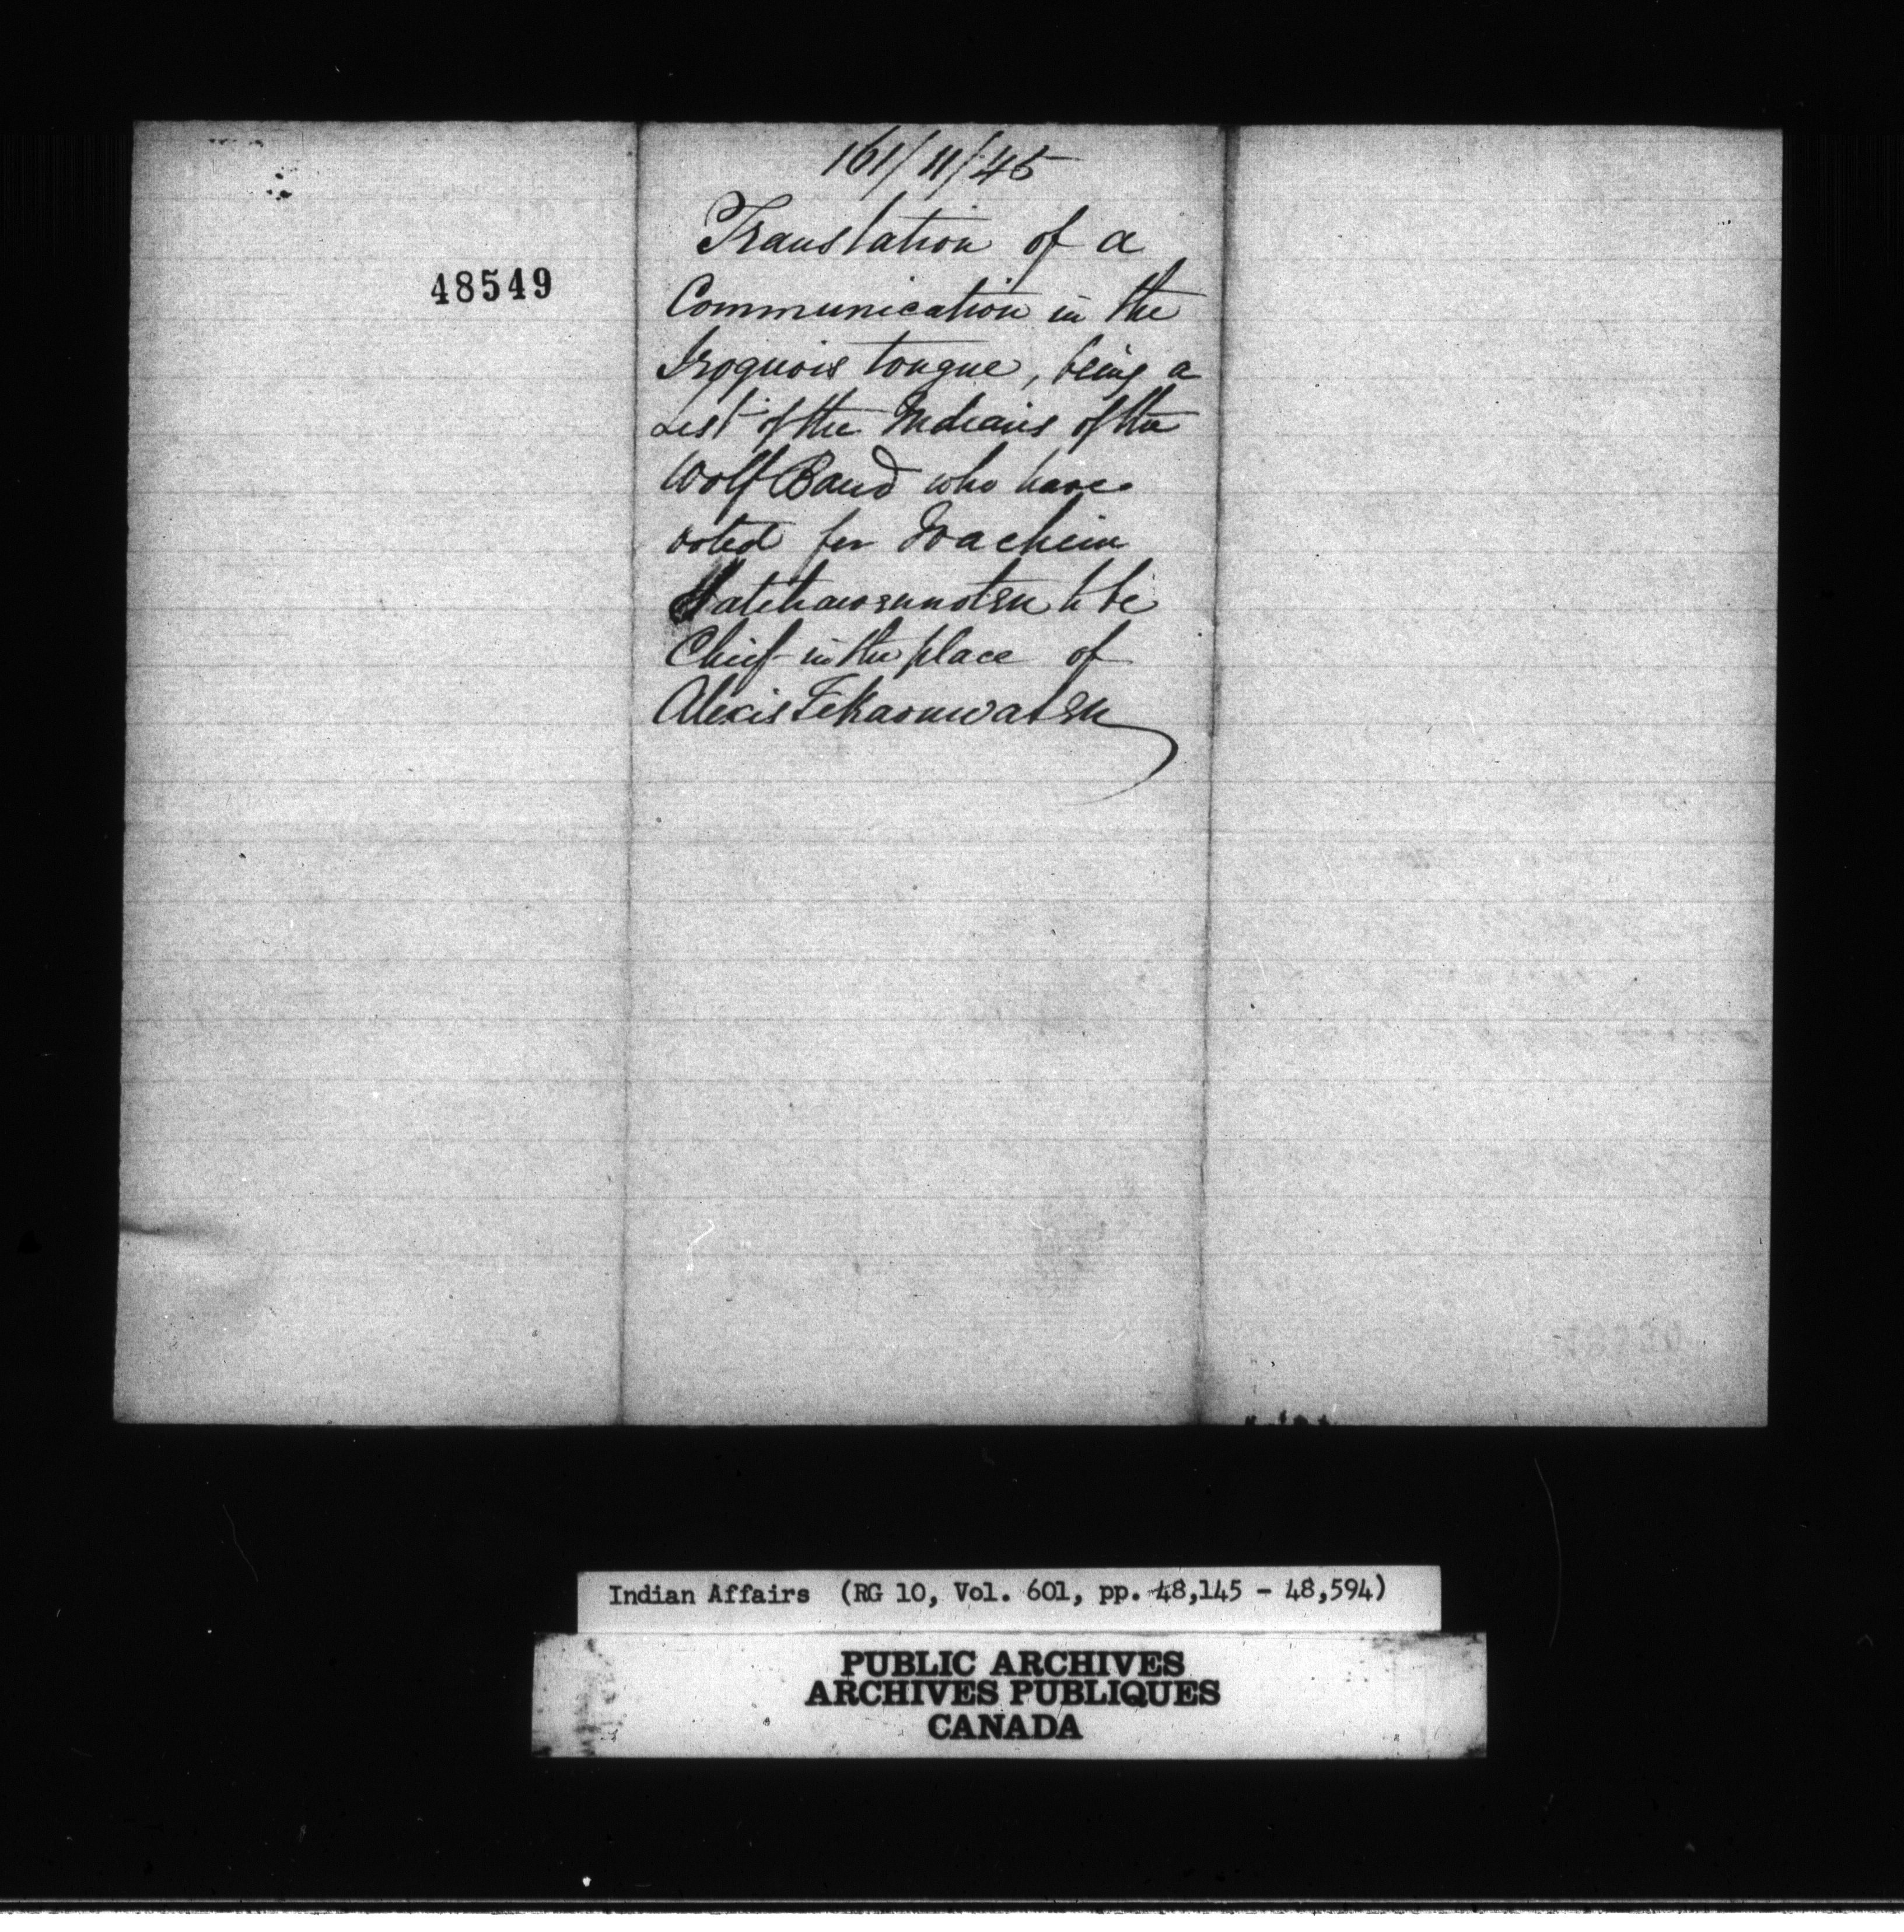 48549
161/11/45
Translation of a
Communication in the
Iroquois tongue, being a
List of the Indians of the
Wolf Band who have
voted for Joachim
to be
Chief in the place of
Alexis
Indian Affairs (RG 10, Vol. 601, pp. 48,145 - 48,594)
PUBLIC ARCHIVES
ARCHIVES PUBLIQUES
CANADA